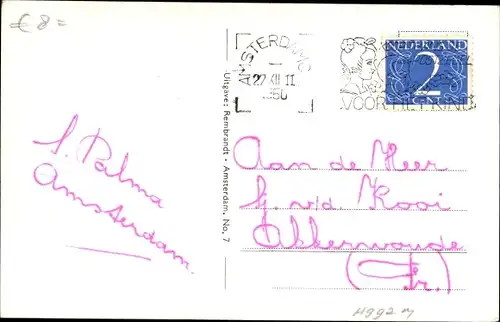 € 8=
AMSTERDAM
22 XII 11
1950
NEDERLAND
2
CNT
VOOR HET KIND
Uitgave: Rembrandt - Amsterdam. No. 7
Palma
Amsterdam.
Aan de Heer
v/d Kooi
Akkerwoude
(Fr.)